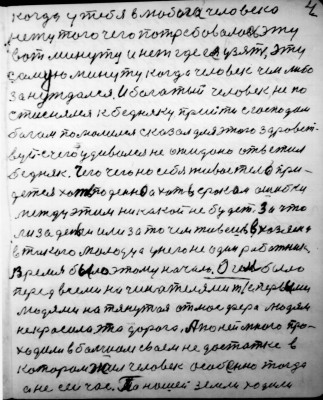 4
когда у тебя в любого человека
нету того чего потребовалось эту
вот минуту и негде взять, эту
самую минуту когда человек чем либо
зануждался. И богатый человек не по
стиснялся к бедняку прийти с господом
богом помолился сказал для этого здравст-
вуй с чего удивился не ожидано ответил
бедняк. Чего чего но себя живо тело при-
детса хоть поденно а хоть сроком ошибки
между этим никакой не будет. За что
ли за деньги или за то чем живешь в хозяина
в такого молодца у него не один работник
Время было этому начало. Оген было
перед всеми начинателями и первыми
людями натянутая атмосфера людям
не красила эта дорога. А по ней много про-
ходили в большом своем не достатке в
котором жил человек особенно тогда
а не сейчас. По нашей земли ходили